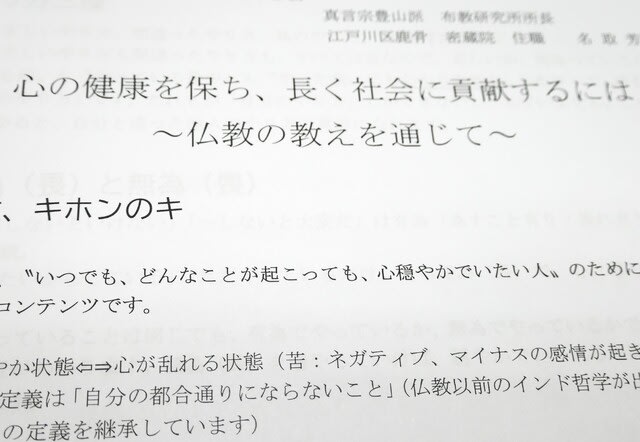 真言宗豊山派 布教研究所所長
江戸川区鹿骨 密蔵院 住職 名取芳
心の健康を保ち、長く社会に貢献するには
～仏教の教えを通じて～
、キホンのキ
〝いつでも、どんなことが起こっても、心穏やかでいたい人〟のために
コンテンツです。
やか状態⇦⇨心が乱れる状態（苦：ネガティブ、マイナスの感情が起き
定義は「自分の都合通りにならないこと」（仏教以前のインド哲学が出
の定義を継承しています）